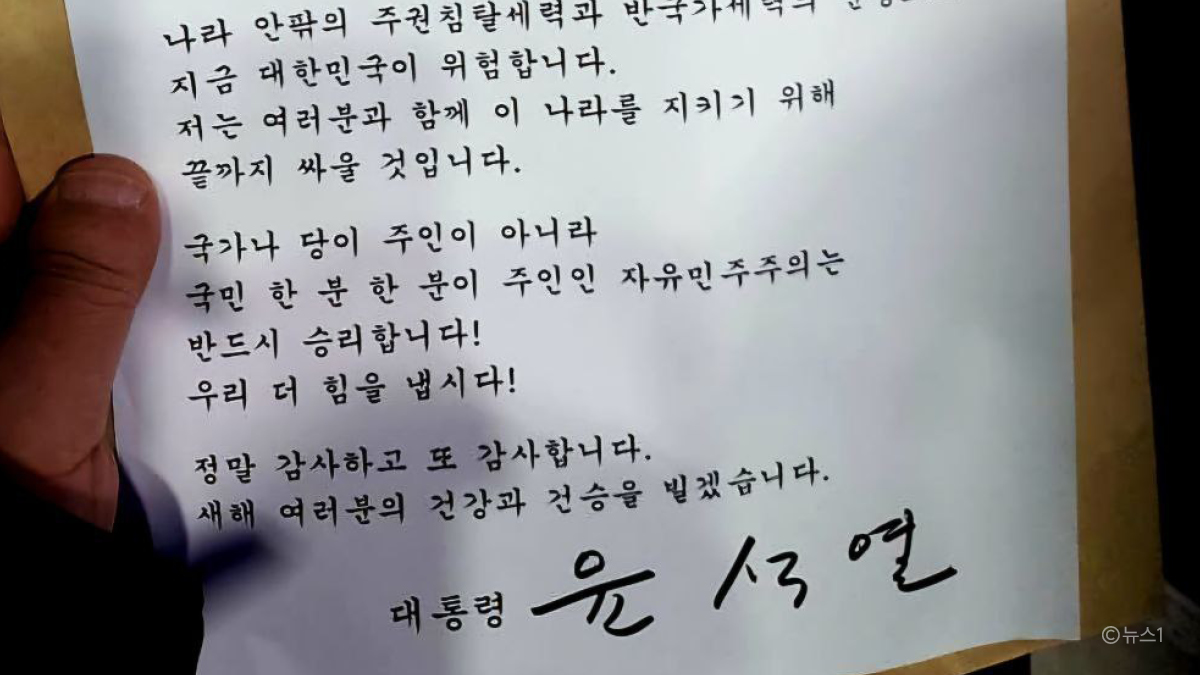 나라 안팎의 주권침탈세력과 반국가세력의
지금 대한민국이 위험합니다.
저는 여러분과 함께 이 나라를 지키기 위해
끝까지 싸울 것입니다.
국가나 당이 주인이 아니라
국민 한 분 한 분이 주인인 자유민주주의는
반드시 승리합니다!
우리 더 힘을 냅시다!
정말 감사하고 또 감사합니다.
새해 여러분의 건강과 건승을 빌겠습니다.
대통령 윤석열
©뉴스1